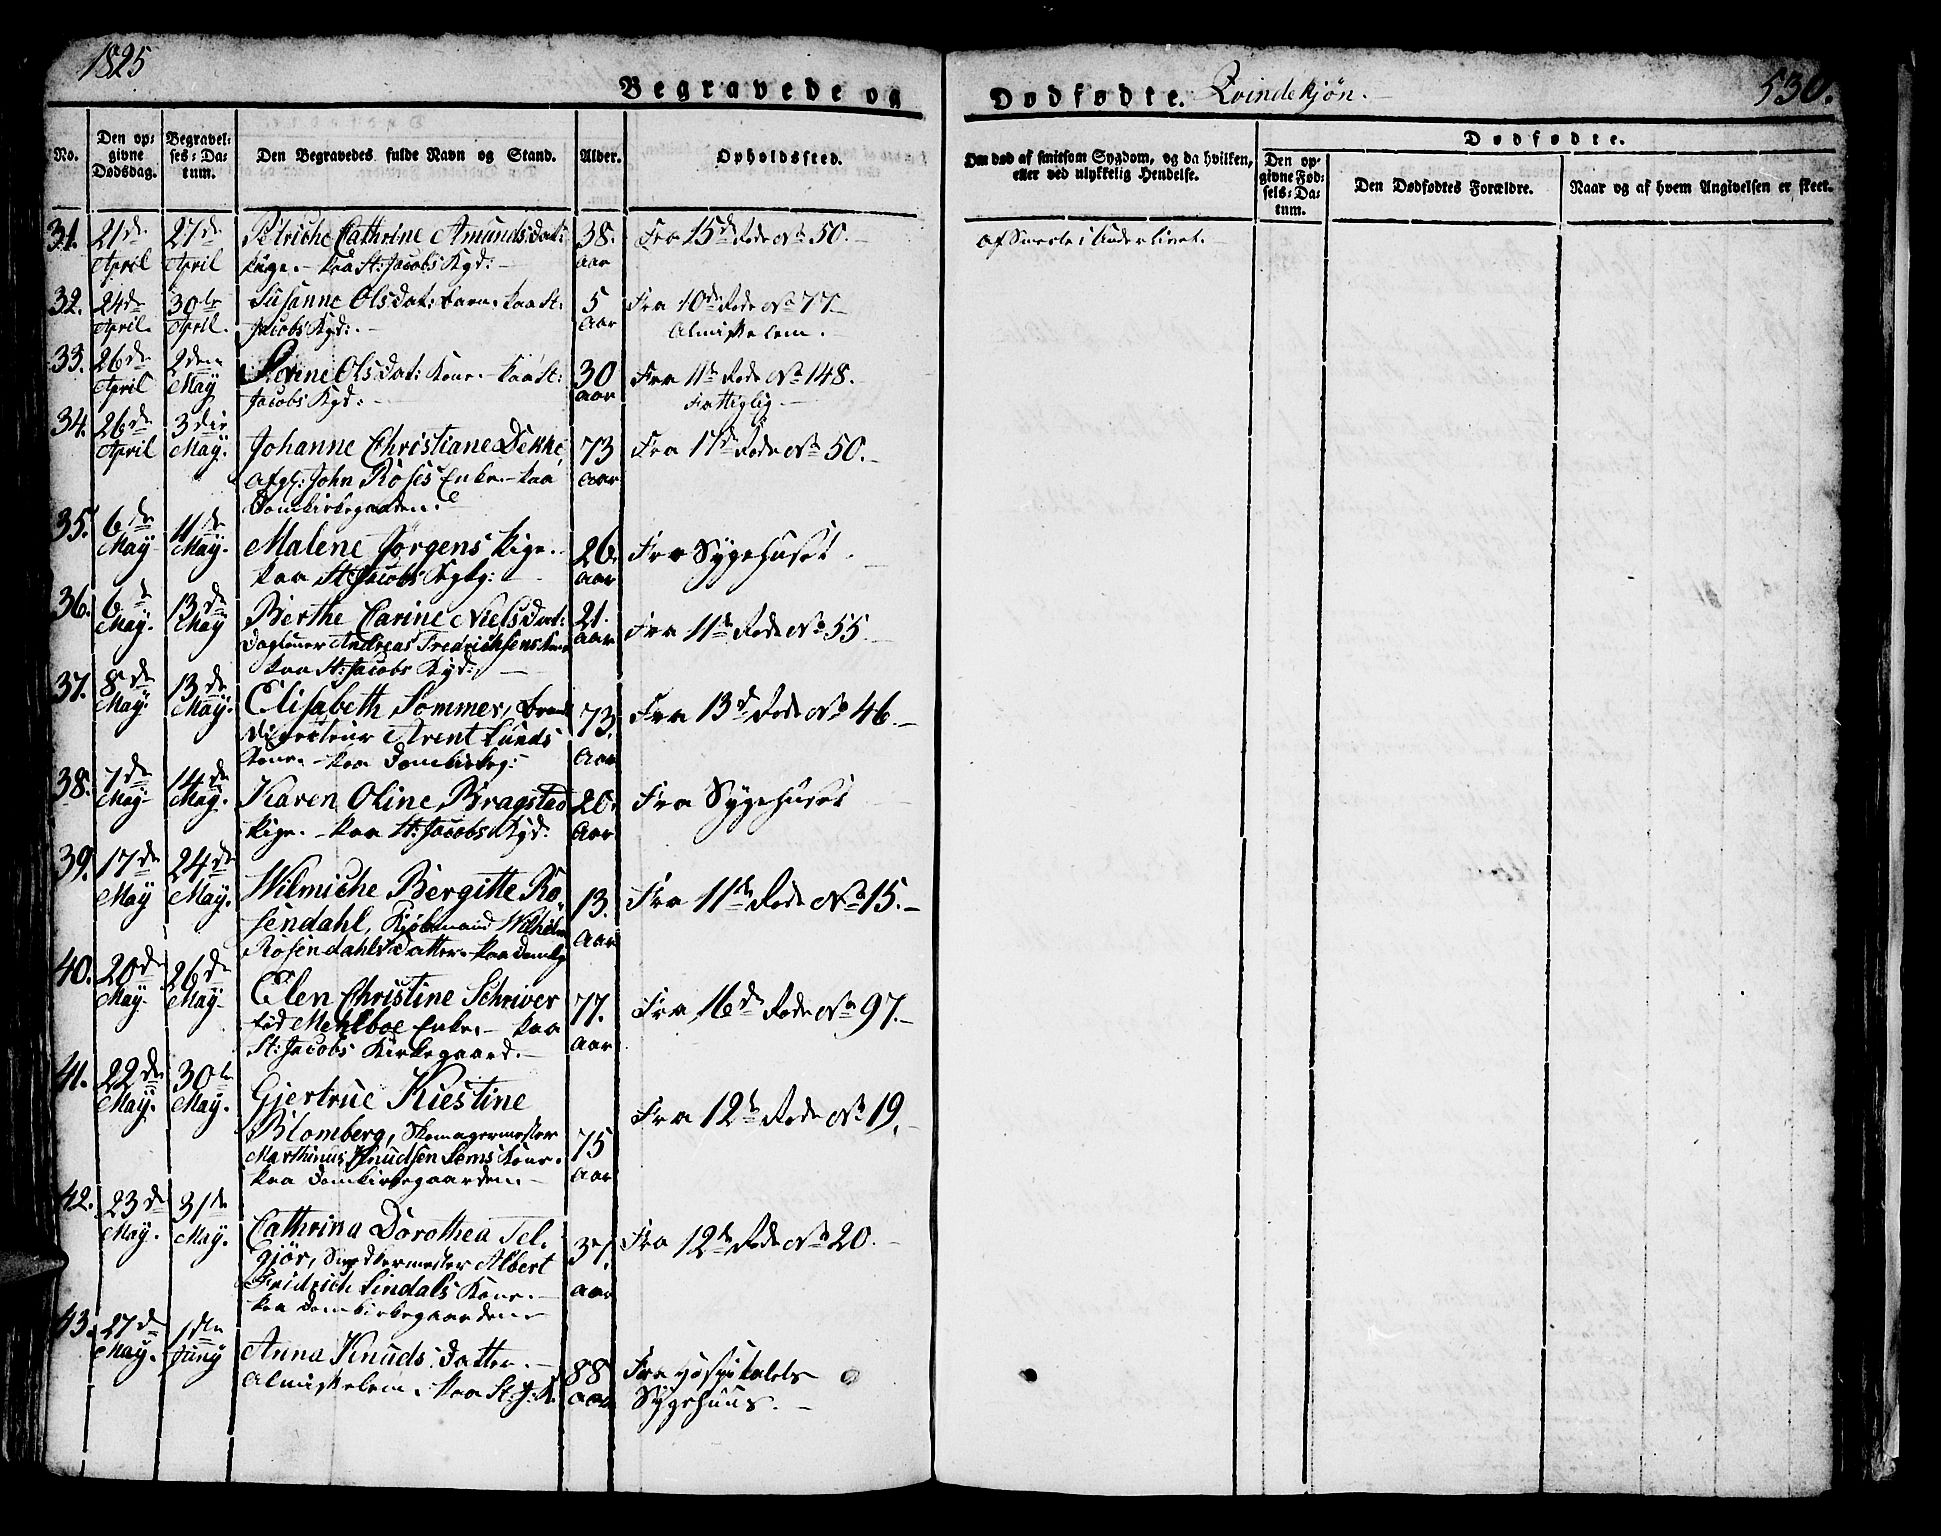 1825
Begravede og
Dodfødte. Qvindekjøn.
530.
No.
Den op=
givne
Dødsdag.
Begravel=
ses=Da=
tum.
Den Begravedes fulde Navn og Stand.
Alder.
Opholdssted.
Om død af smitsom Sygdom, og da hvilken,
eller ved ulykkelig Hendelse.
Dodfødte.
Den op=
givne Fød=
sels=Da=
tum.
Den Dødfødtes Forældre.
Naar og af hvem Angivelsen er skeet.
31. 21de 27de Petriche Cathrine Amundsdat: 38. Fra 15de Rode No 50.
April April Pige. - paa St: Jacobs Kgd: Aar
af i Underlivet.
32. 24de 30te Susanne Olsdat: Barn. paa St: 5 Fra 10de Rode No 77
April. April. Jacobs Kgd: Aar Almisselem.
33. 26de 2den Sevrine Olsdat: Kone. paa St: 30 Fra 11te Rode No 148.
April May Jacobs Kgd: Aar Fattiglig
34. 26de 3die Johanne Christiane Dekke, 73 Fra 17de Rode No 50.
April May. afgl: John Roses Enke. - paa Aar
Domkirkegaarden.
35. 6de 11de Malene Jørgens Pige. 26. Fra Sygehuset.
May May. paa St: Jacobs Kgbg: Aar
36. 6de 13de Berthe Carine Nielsdat: 21. Fra 11te Rode No 55.
May. May Dagleier Andreas Fredrichsens Kone Aar
paa St: Jacobs Kgd:
37. 8de 13de Elisabeth Sommer, Brand 73. Fra 13de Rode No 46.
May. May. Directeur Arent Lunds Aar
Kone. - paa Domkirkeg:
38. 7de 14de Karen Oline Bragstad 20. Fra Sygehuset
May May. Pige. - paa St: Jacobs Kgd: Aar
39. 17de 24de Wilmiche Bergitte Ro= 13. Fra 11te Rode No 15.
May May. sendahl, Kjøbmand Wilhelm Aar
Rosendahls Datter. paa Domkg
40. 20de 26de Elen Christine Schriver 77. Fra 16de Rode No 97.
May. May. fød Mehlboe Enke. - paa Aar
St: Jacobs Kirkegaard.
41. 22de 30te Gjertrue Kiestine Fra 12te Rode No 19.
May. May. Blomberg, Skomagermester 75
Marthinus Knudsen Lems Kone. Aar
paa Domkirkegaarden.
42. 23de 31te Cathrina Dorothea Tel= 37. Fra 12te Rode No 20.
May. May. gjør, Snedkermester Albert
Fridrich Lindals Kone. Aar
paa Domkirkegaarden.
43. 27de 1ste Anna Knuds Datter. 88 Fra Hospitalets
May. Juny Almisselem. paa St: J: K. Aar Sygehuus.